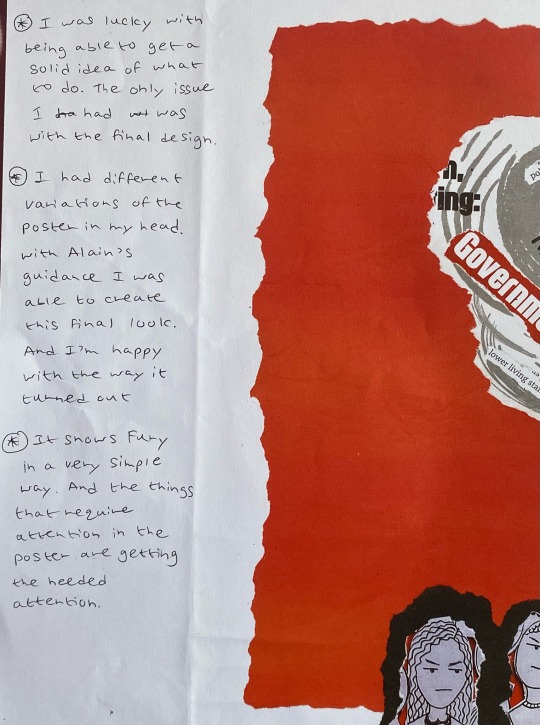 I was lucky with
being able to get a
solid idea of what
to do. The only issue
I had was
with the final design.
I had different
variations of the
poster in my head.
with Alain's
guidance I was
able to create
this final look.
And I'm happy
with the way it
turned out
It shows Fury
in a very simple
way. And the things
that require
attention in the
poster are getting
the needed
attention.
n,
ing:
Governme
lower living stan